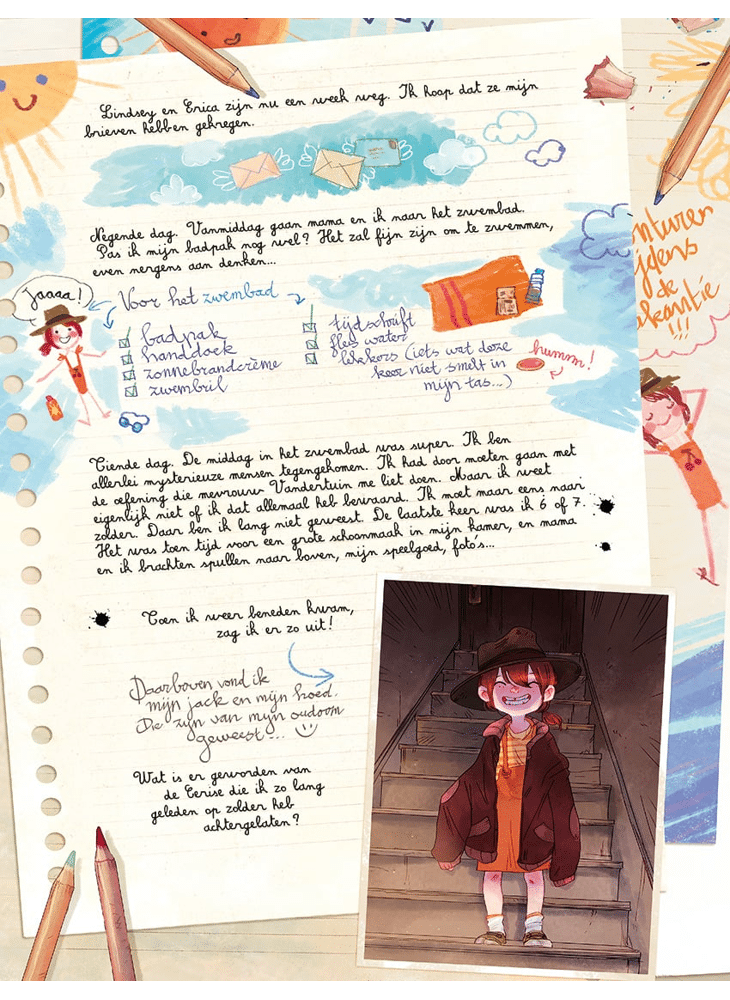 Lindsey en Erica zijn nu een week weg. Ik hoop dat ze mijn
brieven hebben gekregen.
Negende dag. Vanmiddag gaan mama en ik naar het zwembad.
Pas ik mijn badpak nog wel? Het zal fijn zijn om te zwemmen,
even nergens aan denken...
Jaaaa!
Voor het zwembad
badpak
handdoek
zonnebrandcrème
zwembril
tijdschrift
fles water
lekkers (iets wat deze
keer niet smelt in
mijn tas...)
humm!
Tiende dag. De middag in het zwembad was super. Ik ben
allerlei mysterieuze mensen tegengekomen. Ik had door moeten gaan met
de oefening die mevrouw Vandertuin me liet doen. Maar ik weet
eigenlijk niet of ik dat allemaal heb bewaard. Ik moet maar eens naar
zolder. Daar ben ik lang niet geweest. De laatste keer was ik 6 of 7.
Het was toen tijd voor een grote schoonmaak in mijn kamer, en mama
en ik brachten spullen naar boven, mijn speelgoed, foto's...
Toen ik weer beneden kwam,
zag ik er zo uit!
Daarboven vond ik
mijn jack en mijn hoed.
Die zijn van mijn oudoom
geweest...
Wat is er geworden van
de Cerise die ik zo lang
geleden op zolder heb
achtergelaten?
nturen
jdens
de
kantie
!!!